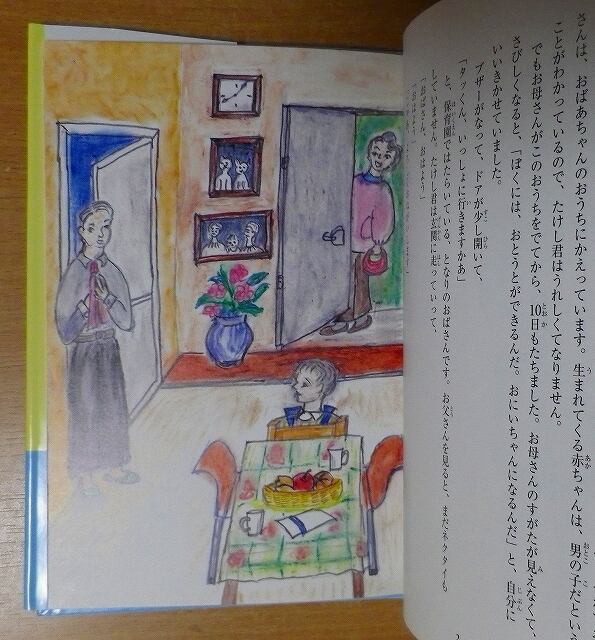 さんは、おばあちゃんのおうちにかえっています。生まれてくる赤ちゃんは、男の子だという
ことがわかっているので、たけし君はうれしくてなりません。
でもお母さんがこのおうちをでてから、10日もたちました。お母さんのすがたが見えなくて、
さびしくなると、「ぼくには、おとうとができるんだ。おにいちゃんになるんだ」と、自分に
いいきかせていました。
ブザーがなって、ドアが少し開いて、
「タッくん、いっしょに行きますかあ」
と、保育園ではたらいている、となりのおばさんです。お父さんを見ると、まだネクタイも
していません。たけし君は玄関に走っていって、
「おばさん、おはよう」
「おはよう」